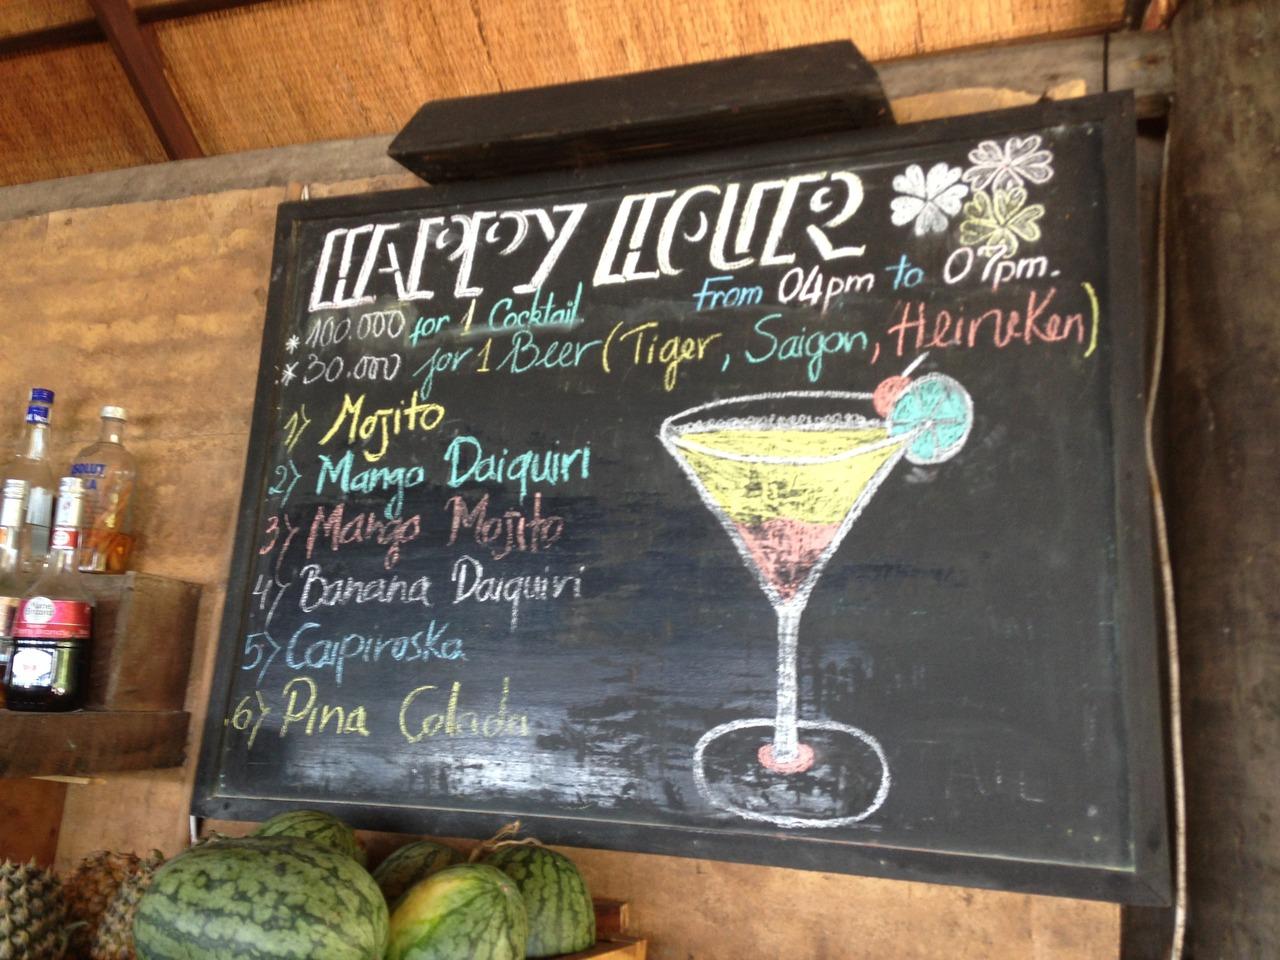 HAPPY HOUR
From 04pm to 07pm.
* 100.000 for 1 Cocktail
* 30.000 for 1 Beer (Tiger, Saigon, Heineken)
1) Mojito
2) Mango Daiquiri
3) Mango Mojito
4) Banana Daiquiri
5) Caipiroska
6) Pina Colada